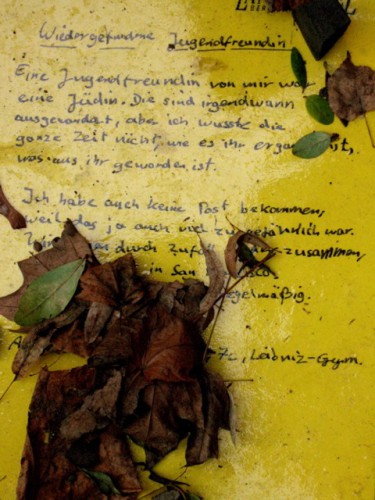 Wiedergefundene Jugendfreundin
Eine Jugendfreundin von mir war
eine Jüdin. Die sind irgendwann
ausgewandert, aber ich wusste die
ganze Zeit nicht, wie es ihr ergangen ist,
was aus ihr geworden ist.
Ich habe auch keine Post bekommen,
weil das ja auch viel zu gefährlich war.
durch Zufall zusammen,
in San
regelmäßig.
Leibniz-Gym.